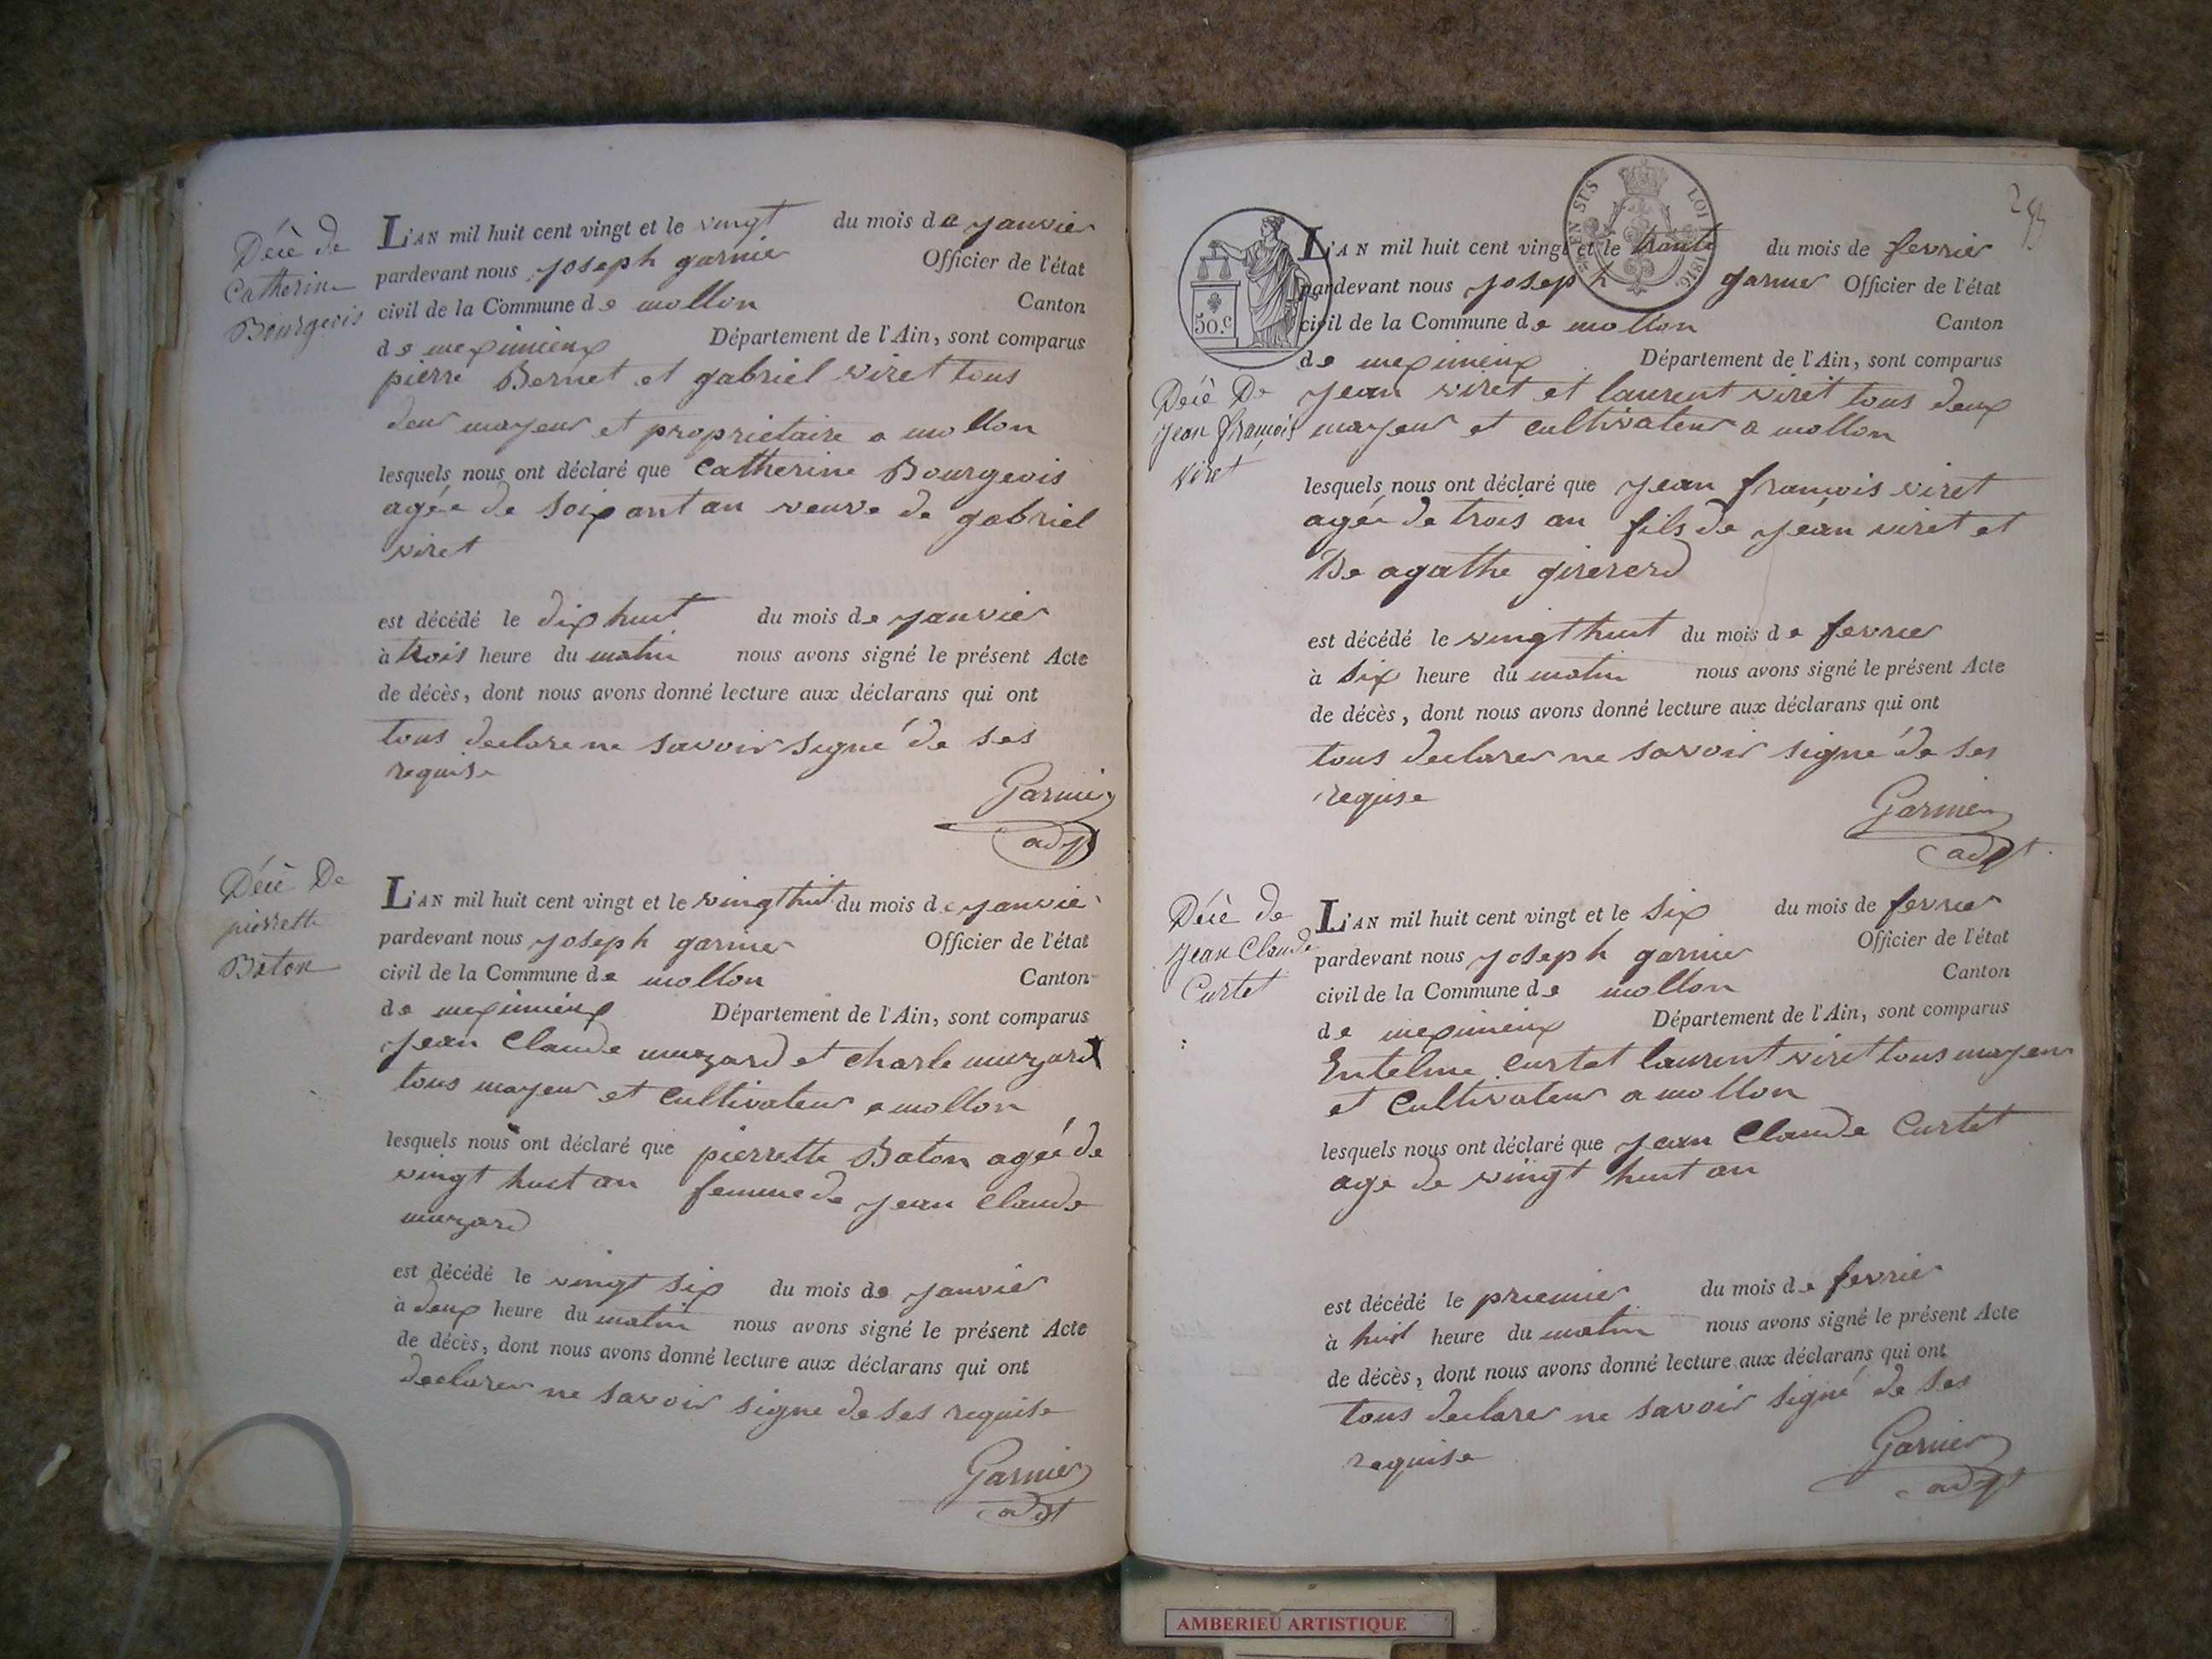 Décè de
Catherine
Bourgeois
L'AN mil huit cent vingt et le vingt du mois de janvier
pardevant nous joseph garnier Officier de l'état
civil de la Commune de mollon Canton
de meximieux Département de l'Ain, sont comparus
pierre Bernet et gabriel viret tous
deux mayeur et proprietaire a mollon
lesquels nous ont déclaré que Catherine Bourgeois
agée de soixant an veuve de gabriel
viret
est décédé le dix huit du mois de janvier
à trois heure du matin nous avons signé le présent Acte
de décès, dont nous avons donné lecture aux déclarans qui ont
tous declare ne savoir signé de ses
requise
Garnier
adjt
Décè De
pierrette
Baton
L'AN mil huit cent vingt et le vingt huit du mois de janvier
pardevant nous joseph garnier Officier de l'état
civil de la Commune de mollon Canton
de meximieux Département de l'Ain, sont comparus
jean Claude murzard et charle murzard
tous mayeur et Cultivateur a mollon
lesquels nous ont déclaré que pierrette Baton agée de
vingt huit an femme de jean Claude
murzard
est décédé le vingt six du mois de janvier
à deux heure du matin nous avons signé le présent Acte
de décès, dont nous avons donné lecture aux déclarans qui ont
declarer ne savoir signe de ses requise
Garnier
adjt
EN SUS LOI 1816
50.c
L'AN mil huit cent vingt et le trante du mois de fevrier
pardevant nous joseph garnier Officier de l'état
civil de la Commune de mollon Canton
de meximieux Département de l'Ain, sont comparus
Décè De
jean françois
viret
jean viret et laurent viret tous deux
mayeur et cultivateur a mollon
lesquels nous ont déclaré que jean francois viret
agée de trois an fils de jean viret et
De agathe girererd
est décédé le vingt huit du mois de fevrier
à six heure du matin nous avons signé le présent Acte
de décès, dont nous avons donné lecture aux déclarans qui ont
tous declarer ne savoir signé de ses
requise
Garnier
adjt
Décè de
jean Claude
Curtet
L'AN mil huit cent vingt et le six du mois de fevrier
pardevant nous joseph garnier Officier de l'état
civil de la Commune de mollon Canton
de meximieux Département de l'Ain, sont comparus
Entelme Curtet laurent viret tous mayeur
et Cultivateur a mollon
lesquels nous ont déclaré que jean Claude Curtet
age de vingt huit an
est décédé le priemier du mois de fevrier
à huit heure du matin nous avons signé le présent Acte
de décès, dont nous avons donné lecture aux déclarans qui ont
tous declarer ne savoir signé de ses
requise
Garnier
adjt
AMBERIEU ARTISTIQUE